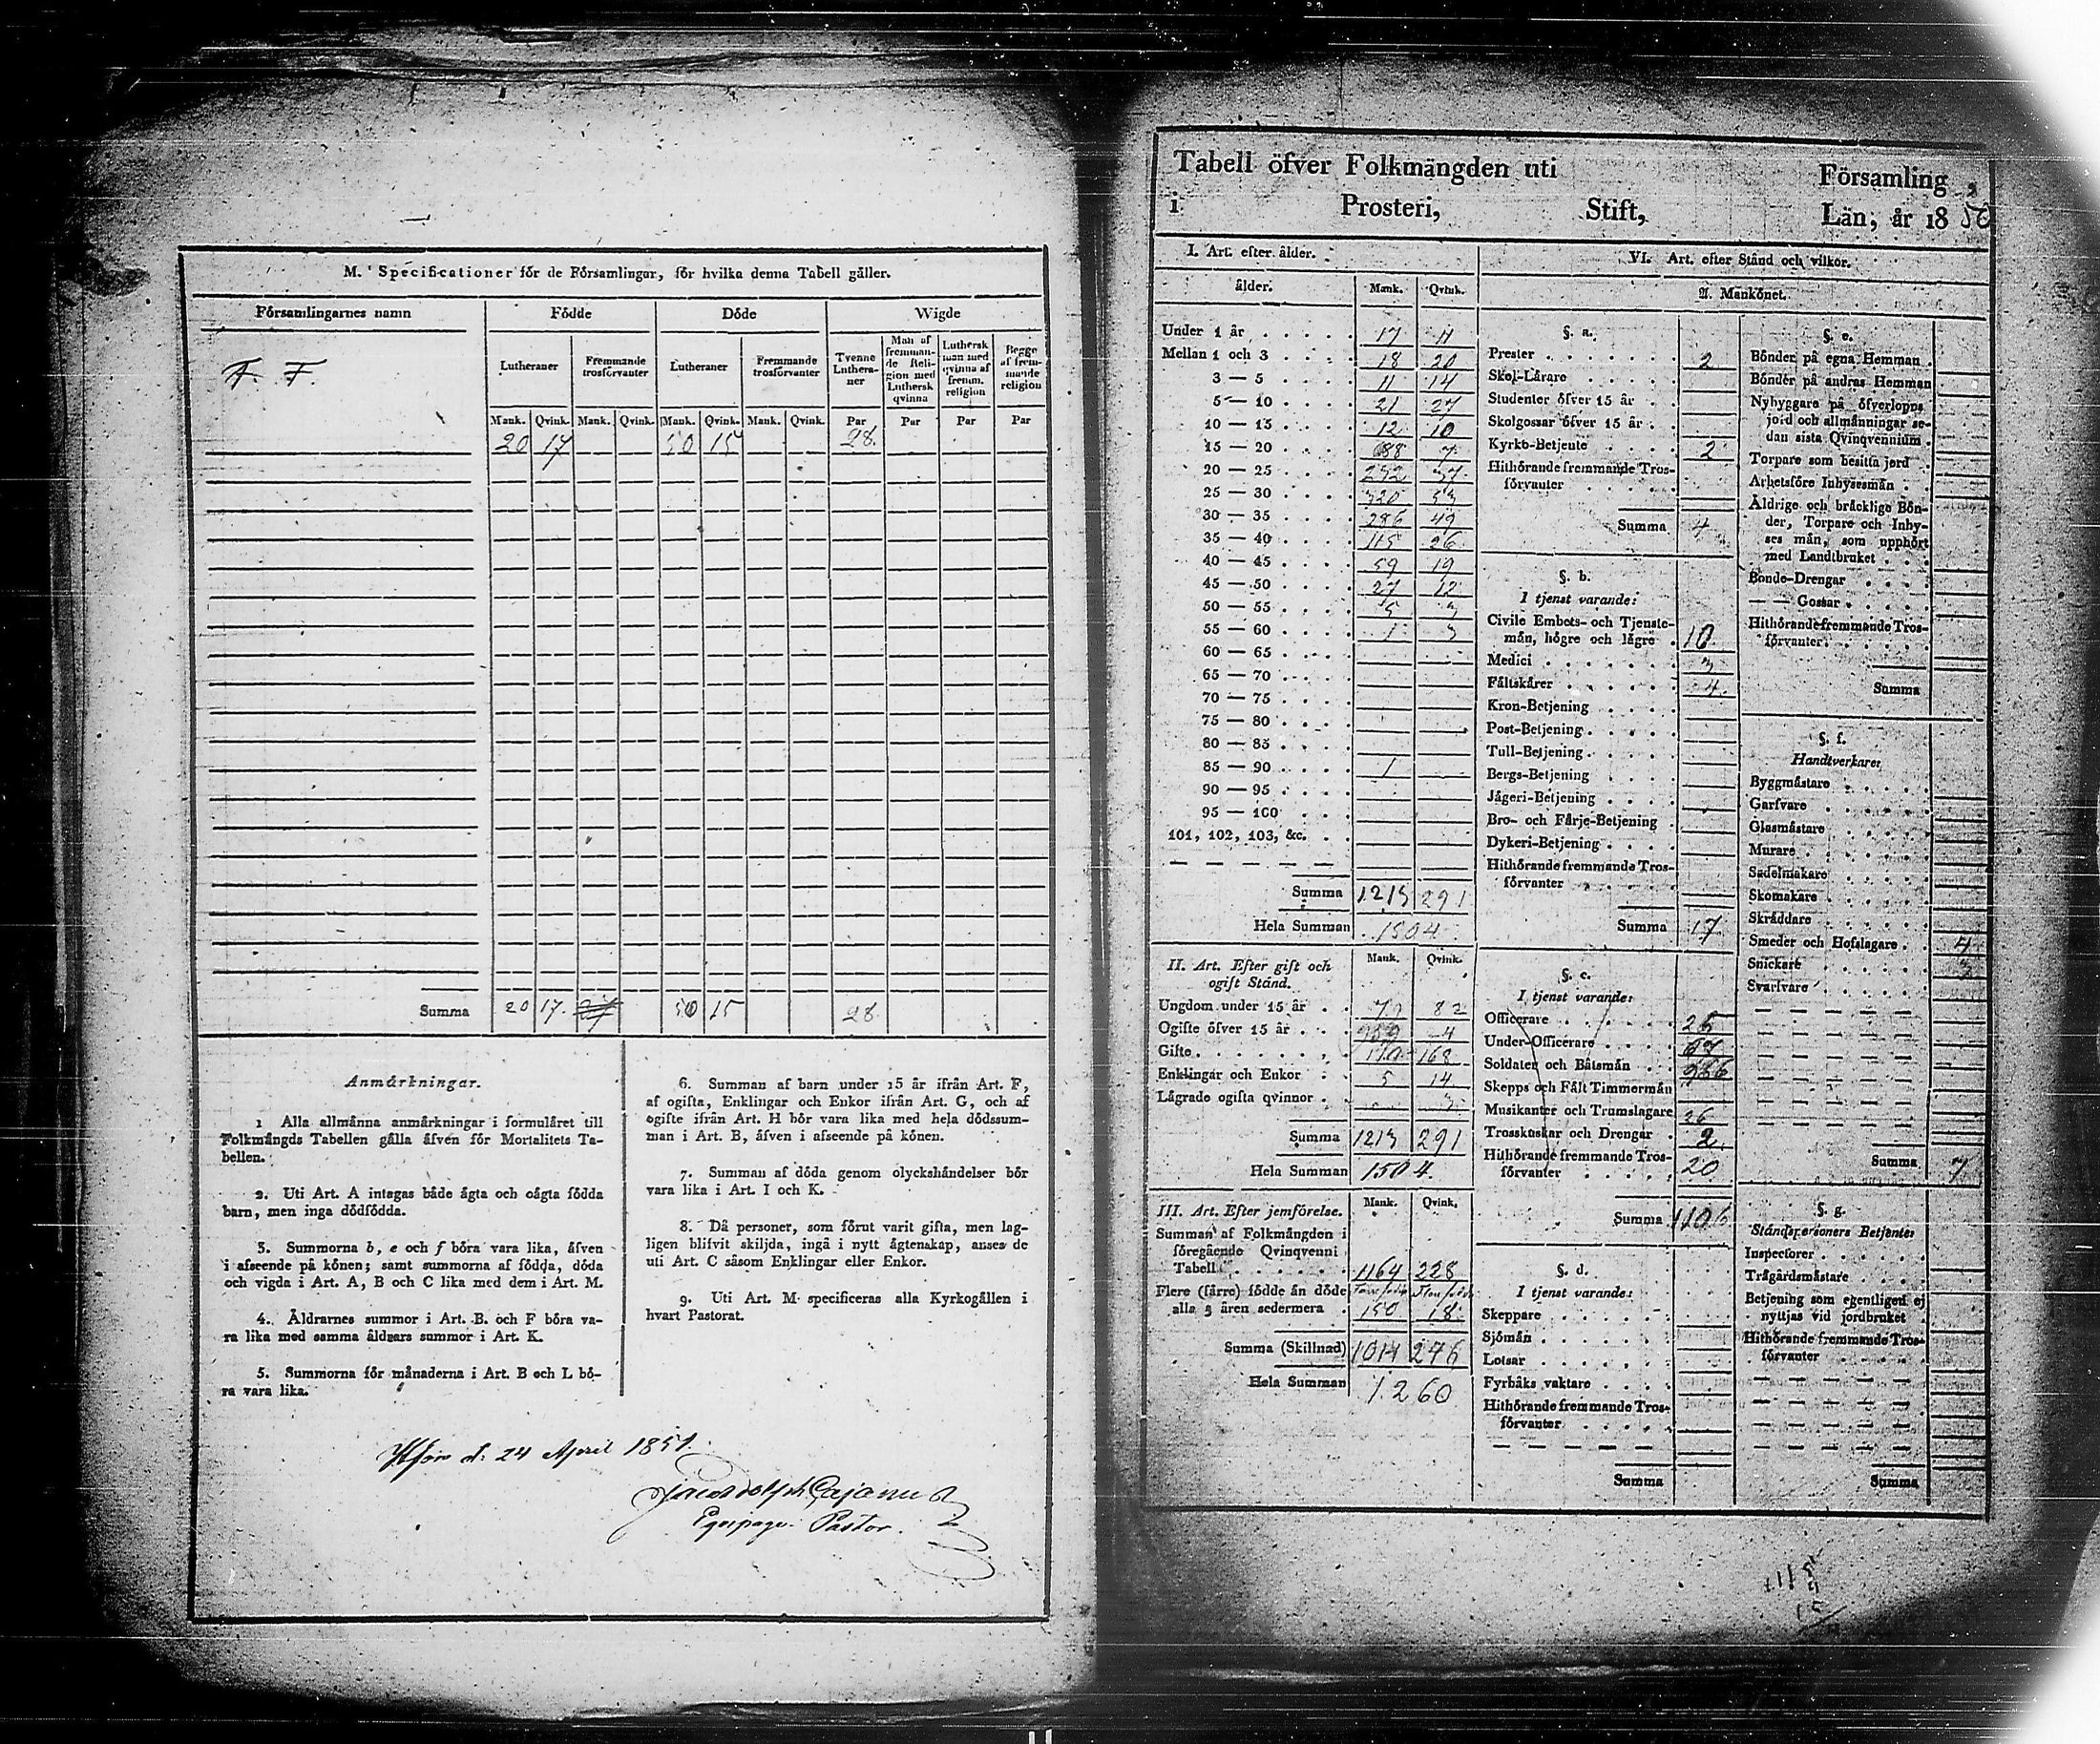 M. Specificationer för de Församlingar, för hvilka denna Tabell gäller.
Församlingarnes namn
Födde
Döde
Wigde
Lutheraner
Fremmande trosförvanter
Lutheraner
Fremmande trosförvanter
Tvenne Luthera-ner
Man af fremman-de Reli-gion med Luthersk qvinna
Luthersk man med qvinna af fremm. religion
Begge af frem-mande religion
Mank. Qvink. Mank. Qvink. Mank. Qvink. Mank. Qvink. Par Par Par Par
F. F.
20 17 50 15 28
Summa 20 17. 50 15 28
Anmärkningar.
1 Alla allmänna anmärkningar i formuläret till
Folkmängds Tabellen gälla äfven för Mortalitets Ta-
bellen.
2. Uti Art. A intagas både ägta och oägta födda
barn, men inga dödfödda.
3. Summorna b, e och f böra vara lika, äfven
i afseende på könen; samt summorna af födda, döda
och vigda i Art. A, B och C lika med dem i Art. M.
4. Åldrarnes summor i Art. B. och F böra va-
ra lika med samma åldrars summor i Art. K.
5. Summorna för månaderna i Art. B och L bö-
ra vara lika.
6. Summan af barn under 15 år ifrån Art. F,
af ogifta, Enklingar och Enkor ifrån Art. G, och af
ogifte ifrån Art. H bör vara lika med hela dödssum-
man i Art. B, äfven i afseende på könen.
7. Summan af döda genom olyckshändelser bör
vara lika i Art. I och K.
8. Då personer, som förut varit gifta, men lag-
ligen blifvit skiljda, ingå i nytt ägtenskap, anses de
uti Art. C såsom Enklingar eller Enkor.
9. Uti Art. M specificeras alla Kyrkogällen i
hvart Pastorat.
d. 24 April 1851.
Cajanus
Pastor.
Tabell öfver Folkmängden uti Församling,
i Prosteri, Stift, Län, år 1850
I. Art. efter ålder.
ålder. Mank. Qvink.
Under 1 år 17 11
Mellan 1 och 3 18 20
3 — 5 11 14
5 — 10 21 27
10 — 15 12 10
15 — 20 7
20 — 25 292 37
25 — 30 320 53
30 — 35 286 49
35 — 40 115 26
40 — 45 59 19
45 — 50 27 12
50 — 55 5 3
55 — 60 1 3
60 — 65
65 — 70
70 — 75
75 — 80
80 — 85
85 — 90 1
90 — 95
95 — 100
101, 102, 103, &c.
Summa 1213 291
Hela Summan 1504
II. Art. Efter gift och
ogift Stånd.
Mank. Qvink.
Ungdom under 15 år 79 82
Ogifte öfver 15 år
Gifte 168
Enklingar och Enkor 5 14
Lägrade ogifta qvinnor 3
Summa 1213 291
Hela Summan 1504.
III. Art. Efter jemförelse.
Mank. Qvink.
Summan af Folkmängden i
föregående Qvinqvenni
Tabell 1164 228
Flere (färre) födde än döde
alla 5 åren sedermera 150 18
Summa (Skillnad) 1014 246
Hela Summan 1260
VI. Art. efter Stånd och vilkor.
A. Mankönet.
§. a.
Prester 2
Skol-Lärare
Studenter öfver 15 år
Skolgossar öfver 15 år
Kyrko-Betjente 2
Hithörande fremmande Tros-
förvanter
Summa 4
§. b.
I tjenst varande:
Civile Embets- och Tjenste-
män, högre och lägre 10
Medici 3
Fältskärer 4
Kron-Betjening
Post-Betjening
Tull-Betjening
Bergs-Betjening
Jägeri-Betjening
Bro- och Färje-Betjening
Dykeri-Betjening
Hithörande fremmande Tros-
förvanter
Summa 17
§. c.
I tjenst varande:
Officerare 25
Under-Officerare
Soldater och Båtsmän
Skepps och Fält Timmermän
Musikanter och Trumslagare 26
Trosskuskar och Drengar 2
Hithörande fremmande Tros-
förvanter 20
Summa 1106
§. d.
I tjenst varande:
Skeppare
Sjömän
Lotsar
Fyrbåks vaktare
Hithörande fremmande Tros-
förvanter
Summa
§. e.
Bönder på egna Hemman
Bönder på andras Hemman
Nybyggare på öfverlopps
jord och allmänningar se-
dan sista Qvinqvennium
Torpare som besitta jord
Arbetsföre Inhysesmän
Äldrige och bräcklige Bön-
der, Torpare och Inhy-
ses män, som upphört
med Landtbruket
Bonde-Drengar
— — Gossar
Hithörande fremmande Tros-
förvanter
Summa
§. f.
Handtverkare
Byggmästare
Garfvare
Glasmästare
Murare
Sadelmakare
Skomakare
Skräddare
Smeder och Hofslagare 4
Snickare 3
Svarfvare
Summa 7
§. g.
Ståndspersoners Betjente
Inspectorer
Trägårdsmästare
Betjening som egentligen ej
nyttjas vid jordbruket
Hithörande fremmande Tros-
förvanter
Summa